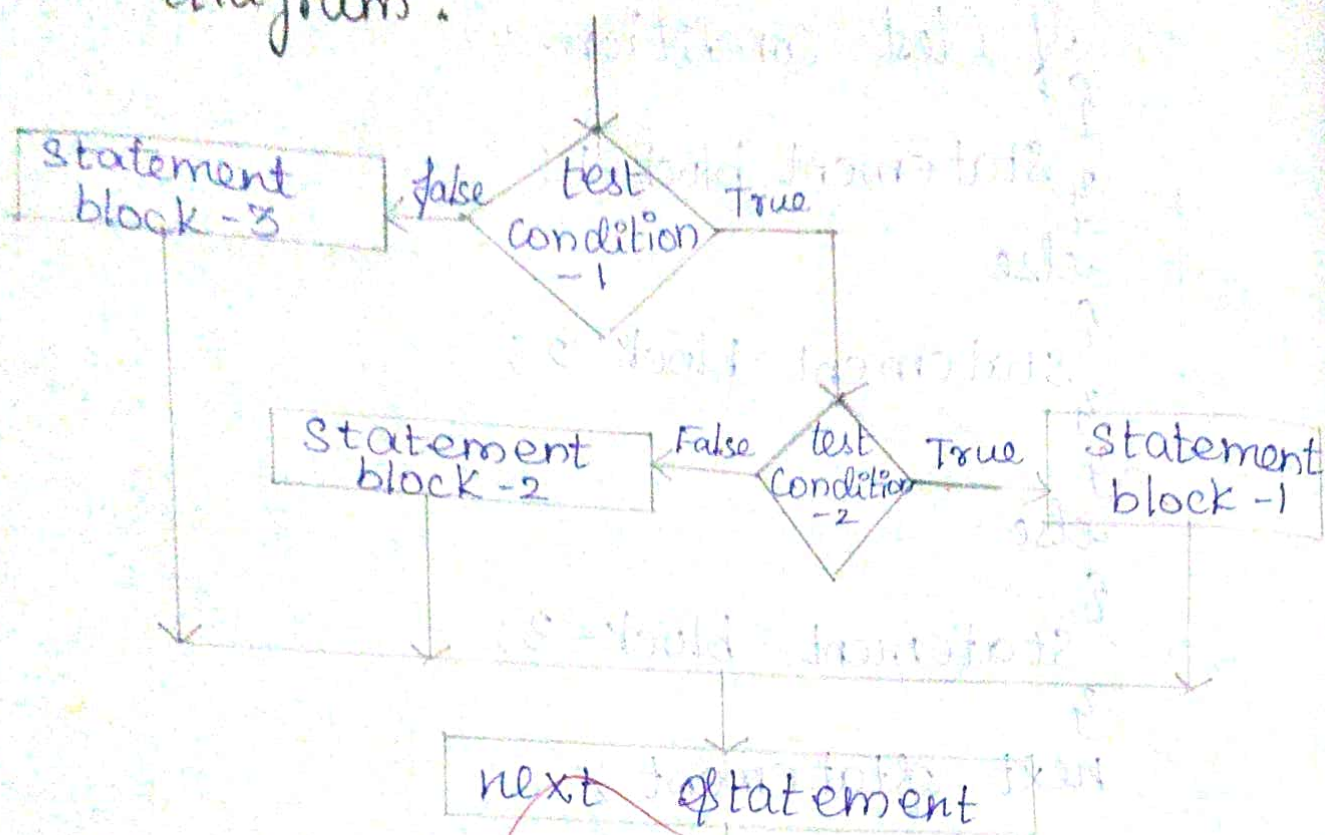 diagram.
Statement
block-3
false
test
condition
-1
True
Statement
block-2
False
test
Condition
-2
True
Statement
block-1
next statement